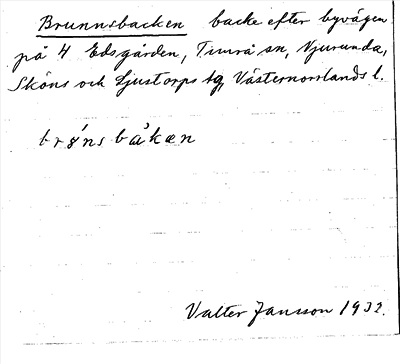 Brunnsbacken backe efter byvägen
på 4 Edsgården, Timrå sn, Njurunda,
Sköns och Ljustorps tg, Västernorrlands l.
Valter Jansson 1932.